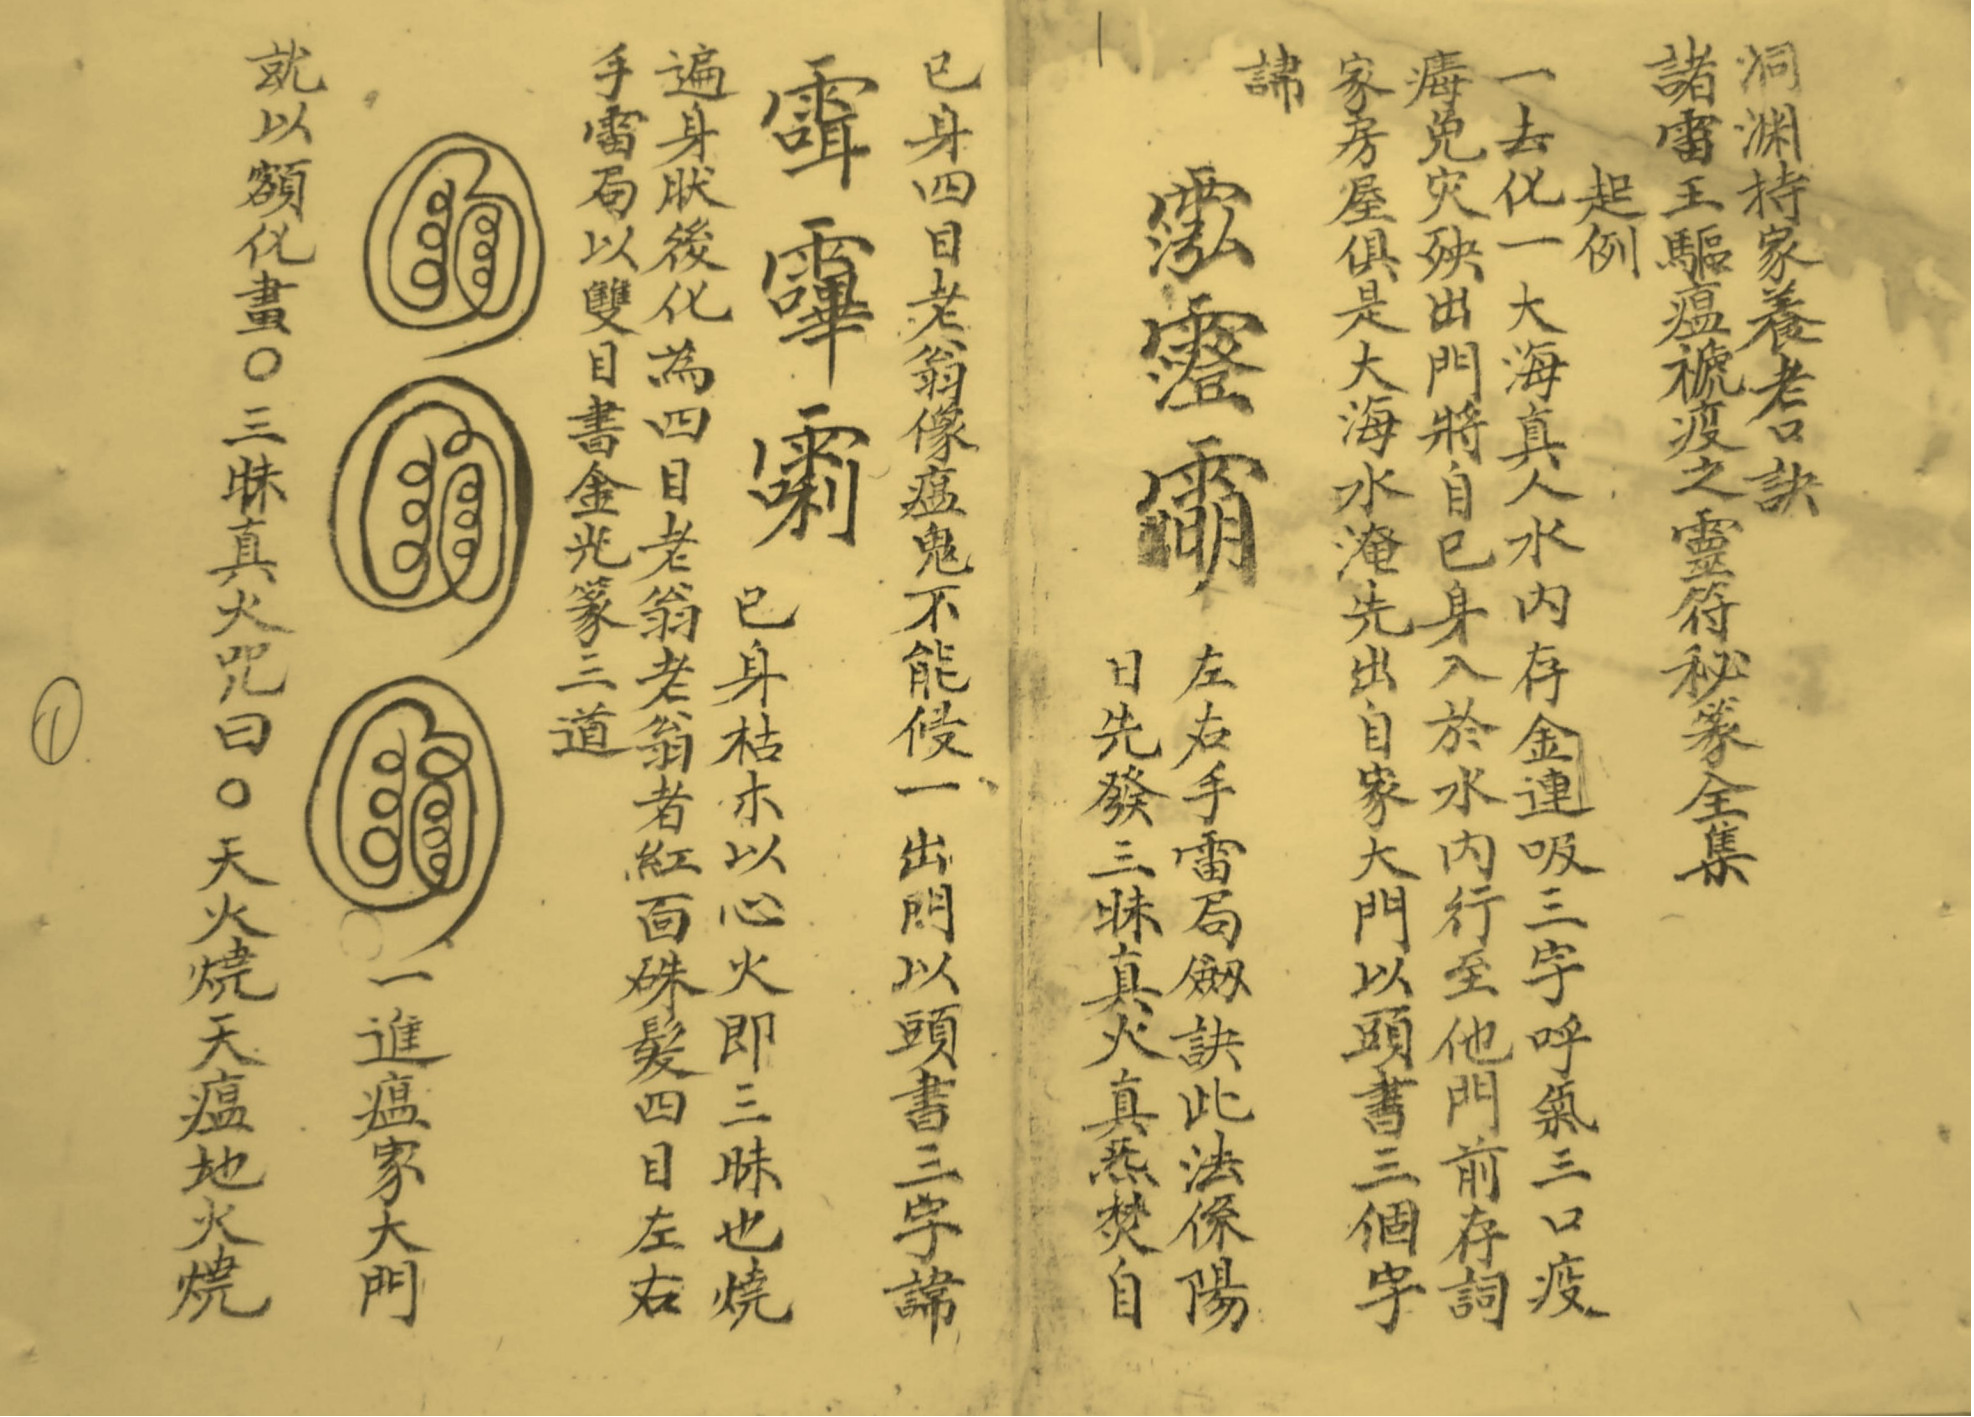 洞渊持家養老口訣
諸雷王驅瘟禠疫之靈符秘篆全集
起例
一去化一大海真人水内存金連吸三字呼氣三口疫
癘免灾殃出門將自已身入於水内行至他門前存詞
家房屋俱是大海水淹先出自家大門以頭書三個字
諱
左右手雷局劔訣此法係陽
日先發三昧真火真炁焚自
已身四目老翁像瘟鬼不能侵一出門以頭書三字諱
已身枯木以心火即三昧也燒
遍身肰後化為四目老翁老翁者紅面硃髮四目左右
手雷局以雙目書金光篆三道
一進瘟家大門
就以額化畫〇三昧真火咒曰〇天火燒天瘟地火燒
①